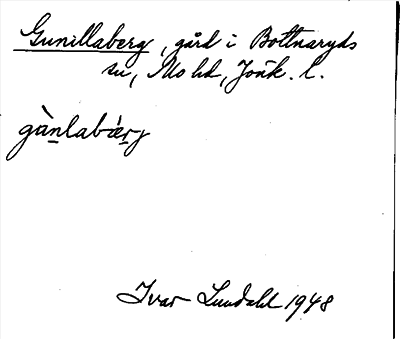 Gunillaberg, gård i Bottnaryds
sn, Mo hd, Jönk. l.
gànlabä́rj
Ivar Lundahl 1948